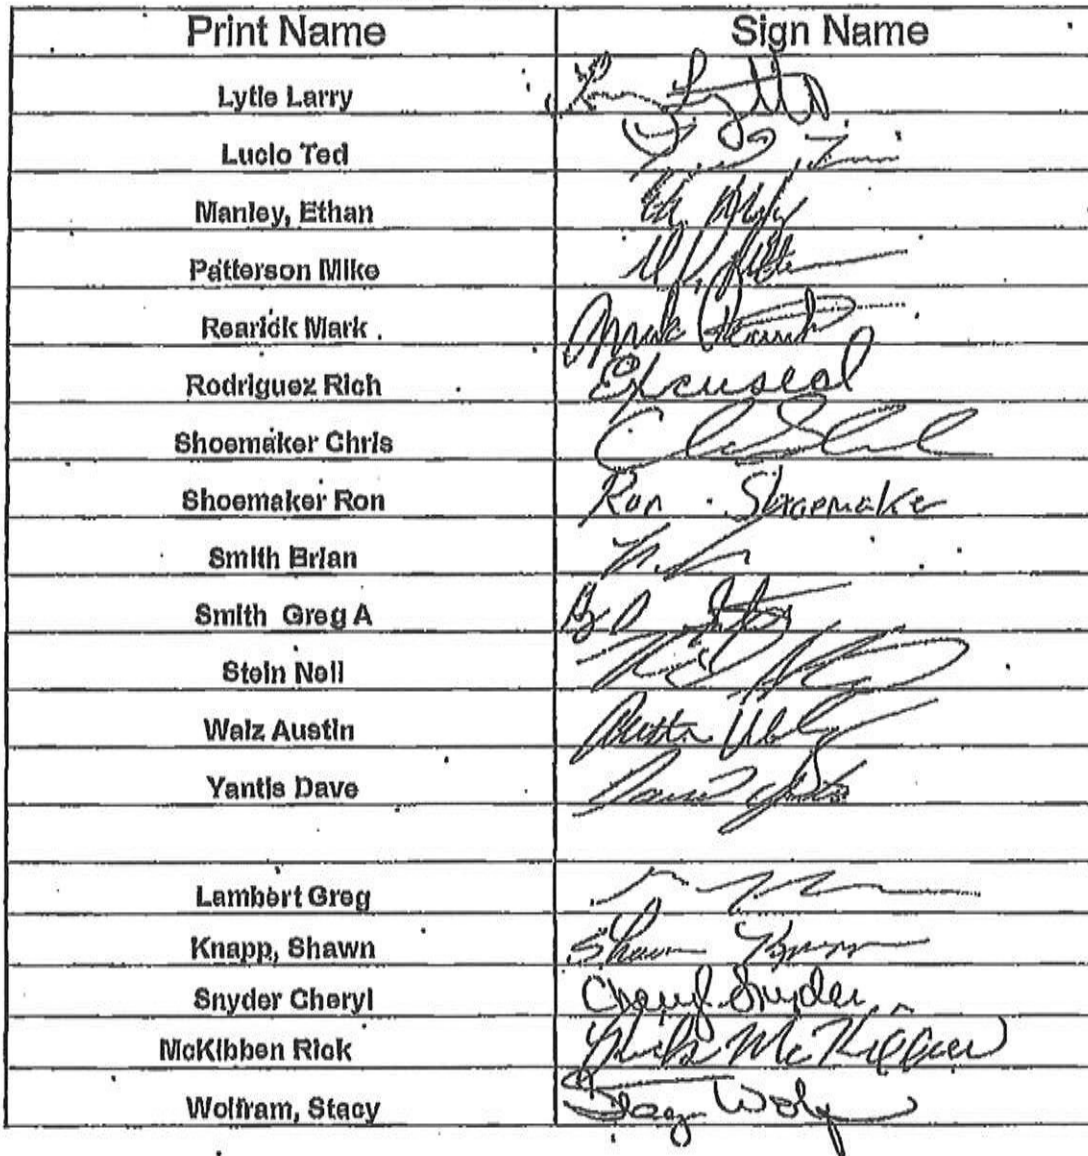 Print Name Sign Name
Lytle Larry
Lucio Ted
Manley, Ethan
Patterson Mike
Rearick Mark Mark Rearick
Rodriguez Rich Excused
Shoemaker Chris
Shoemaker Ron Ron Shoemaker
Smith Brian
Smith Greg A
Stein Neil
Walz Austin Austin Walz
Yantis Dave
Lambert Greg
Knapp, Shawn Shawn Knapp
Snyder Cheryl Cheryl Snyder
McKibben Rick Rick McKibben
Wolfram, Stacy Stacy Wolf